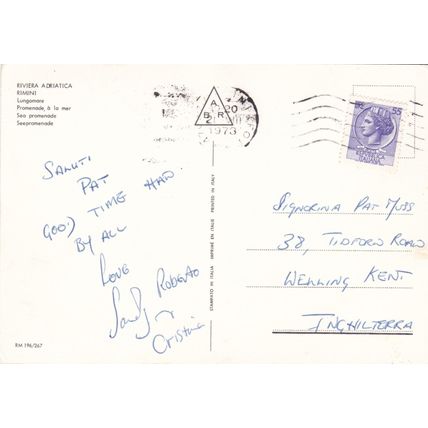 RIVIERA ADRIATICA
RIMINI
Lungomare
Promenade à la mer
Sea promenade
Seepromenade
SALUTI
PAT
GOOD TIME HAD
BY ALL
LOVE
ROBERTO
Sandy
Cristina
RM 196/267
STAMPATO IN ITALIA IMPRIMÉ EN ITALIE PRINTED IN ITALY
A.
B R.
1973
55
SIGNORINA PAT MUSS
38, TIDFORD ROAD
WELLING KENT
INGHILTERRA